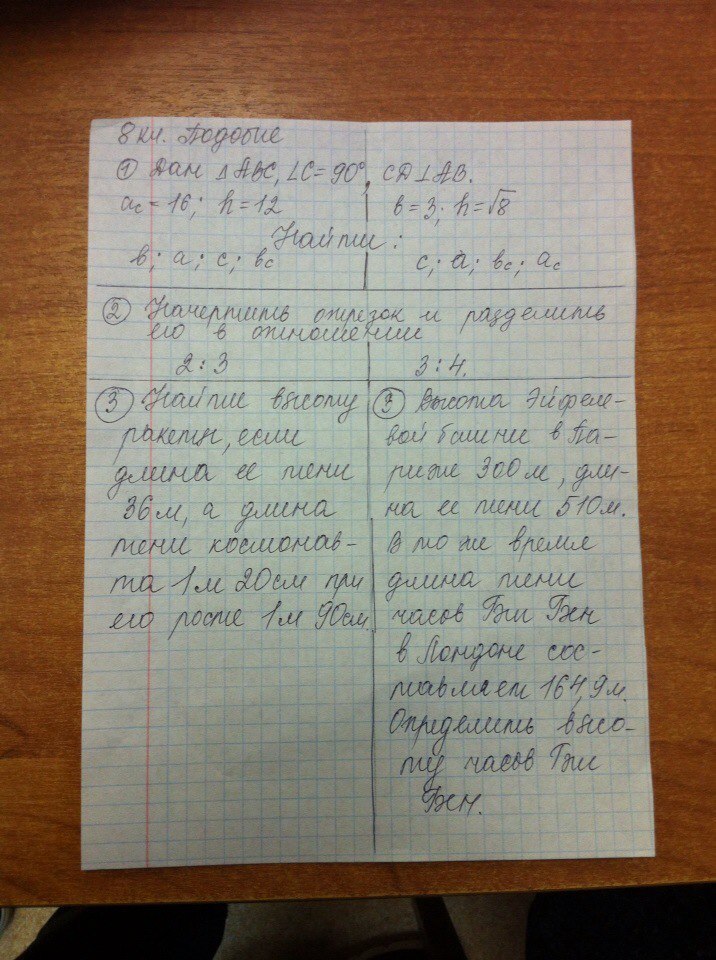 8 кл. Подобие
① Дан △ABC, ∠C=90°, CD⊥AB.
ac = 16; h = 12
в = 3; h = √8
Найти:
в; a; c; вc
c; a; вc; ac
② Начертить отрезок и разделить
его в отношении
2 : 3
3 : 4.
③ Найти высоту
ракеты, если
длина её тени
36м, а длина
тени космонав-
та 1м 20см при
его росте 1м 90см.
③ Высота Эйфеле-
вой башни в Па-
риже 300м, дли-
на её тени 510м.
В то же время
длина тени
часов Биг Бен
в Лондоне сос-
тавляет 164,9м.
Определить высо-
ту часов Биг
Бен.